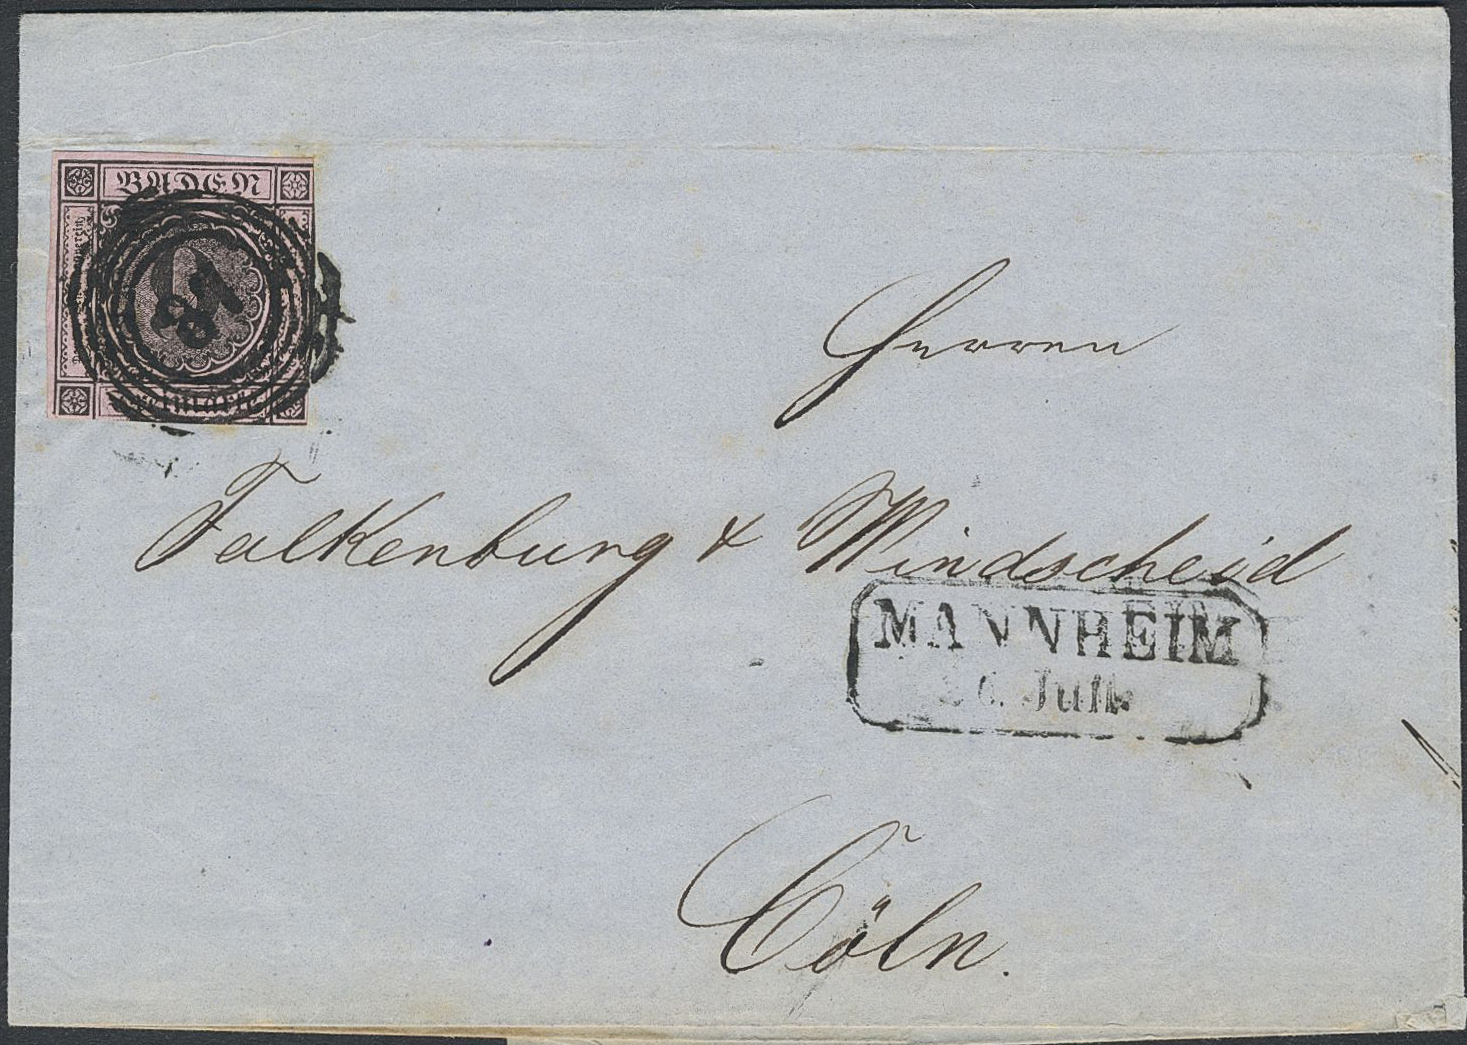 BADEN
87
Herren
Falkenburg & Windscheid
MANNHEIM
Juli.
Cöln.